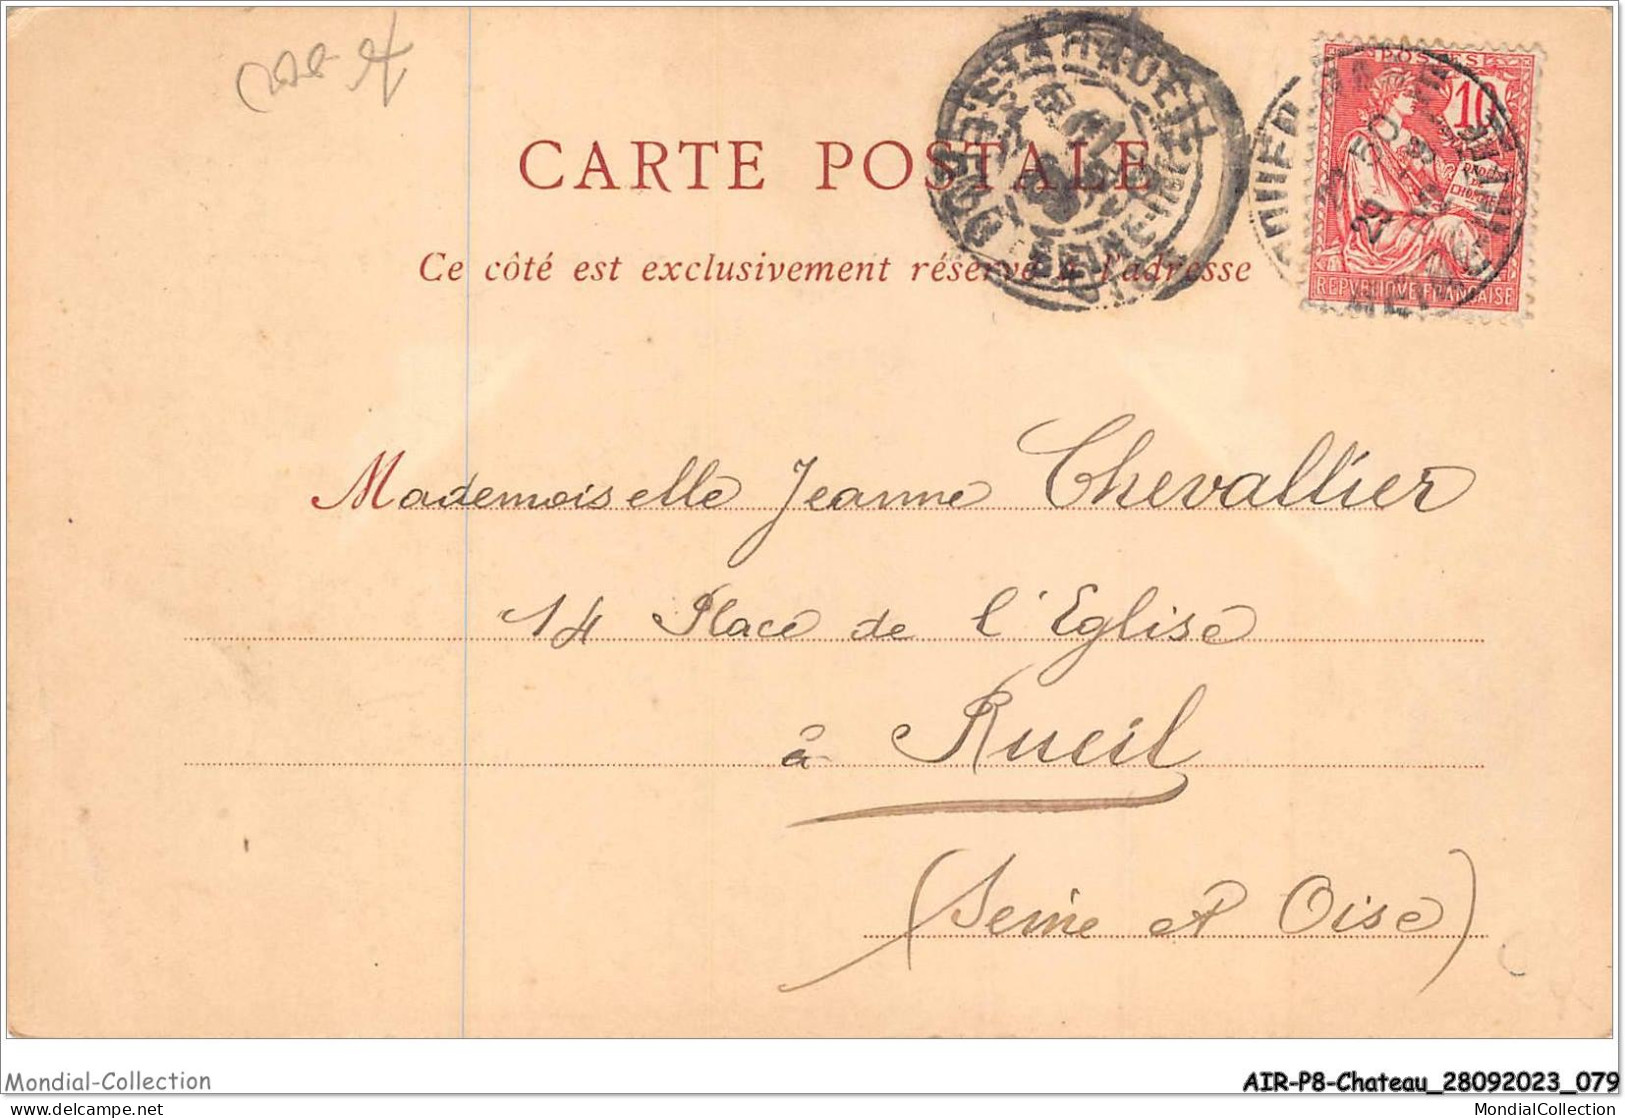 CARTE POSTALE
Ce côté est exclusivement réservé à l'adresse
POSTES
10
DROITS
DE
L'HOMME
REPVBLIQVE FRANÇAISE
Mademoiselle Jeanne Chevallier
14 Place de l'Eglise
à Rueil
(Seine et Oise)
Mondial-Collection
AIR-P8-Chateau_28092023_079
www.delcampe.net
MondialCollection